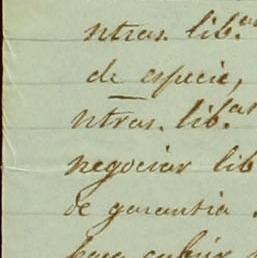 ntras. lib.as
de especie,
ntras. lib.as
negociar lib
de garantia
para cubrir